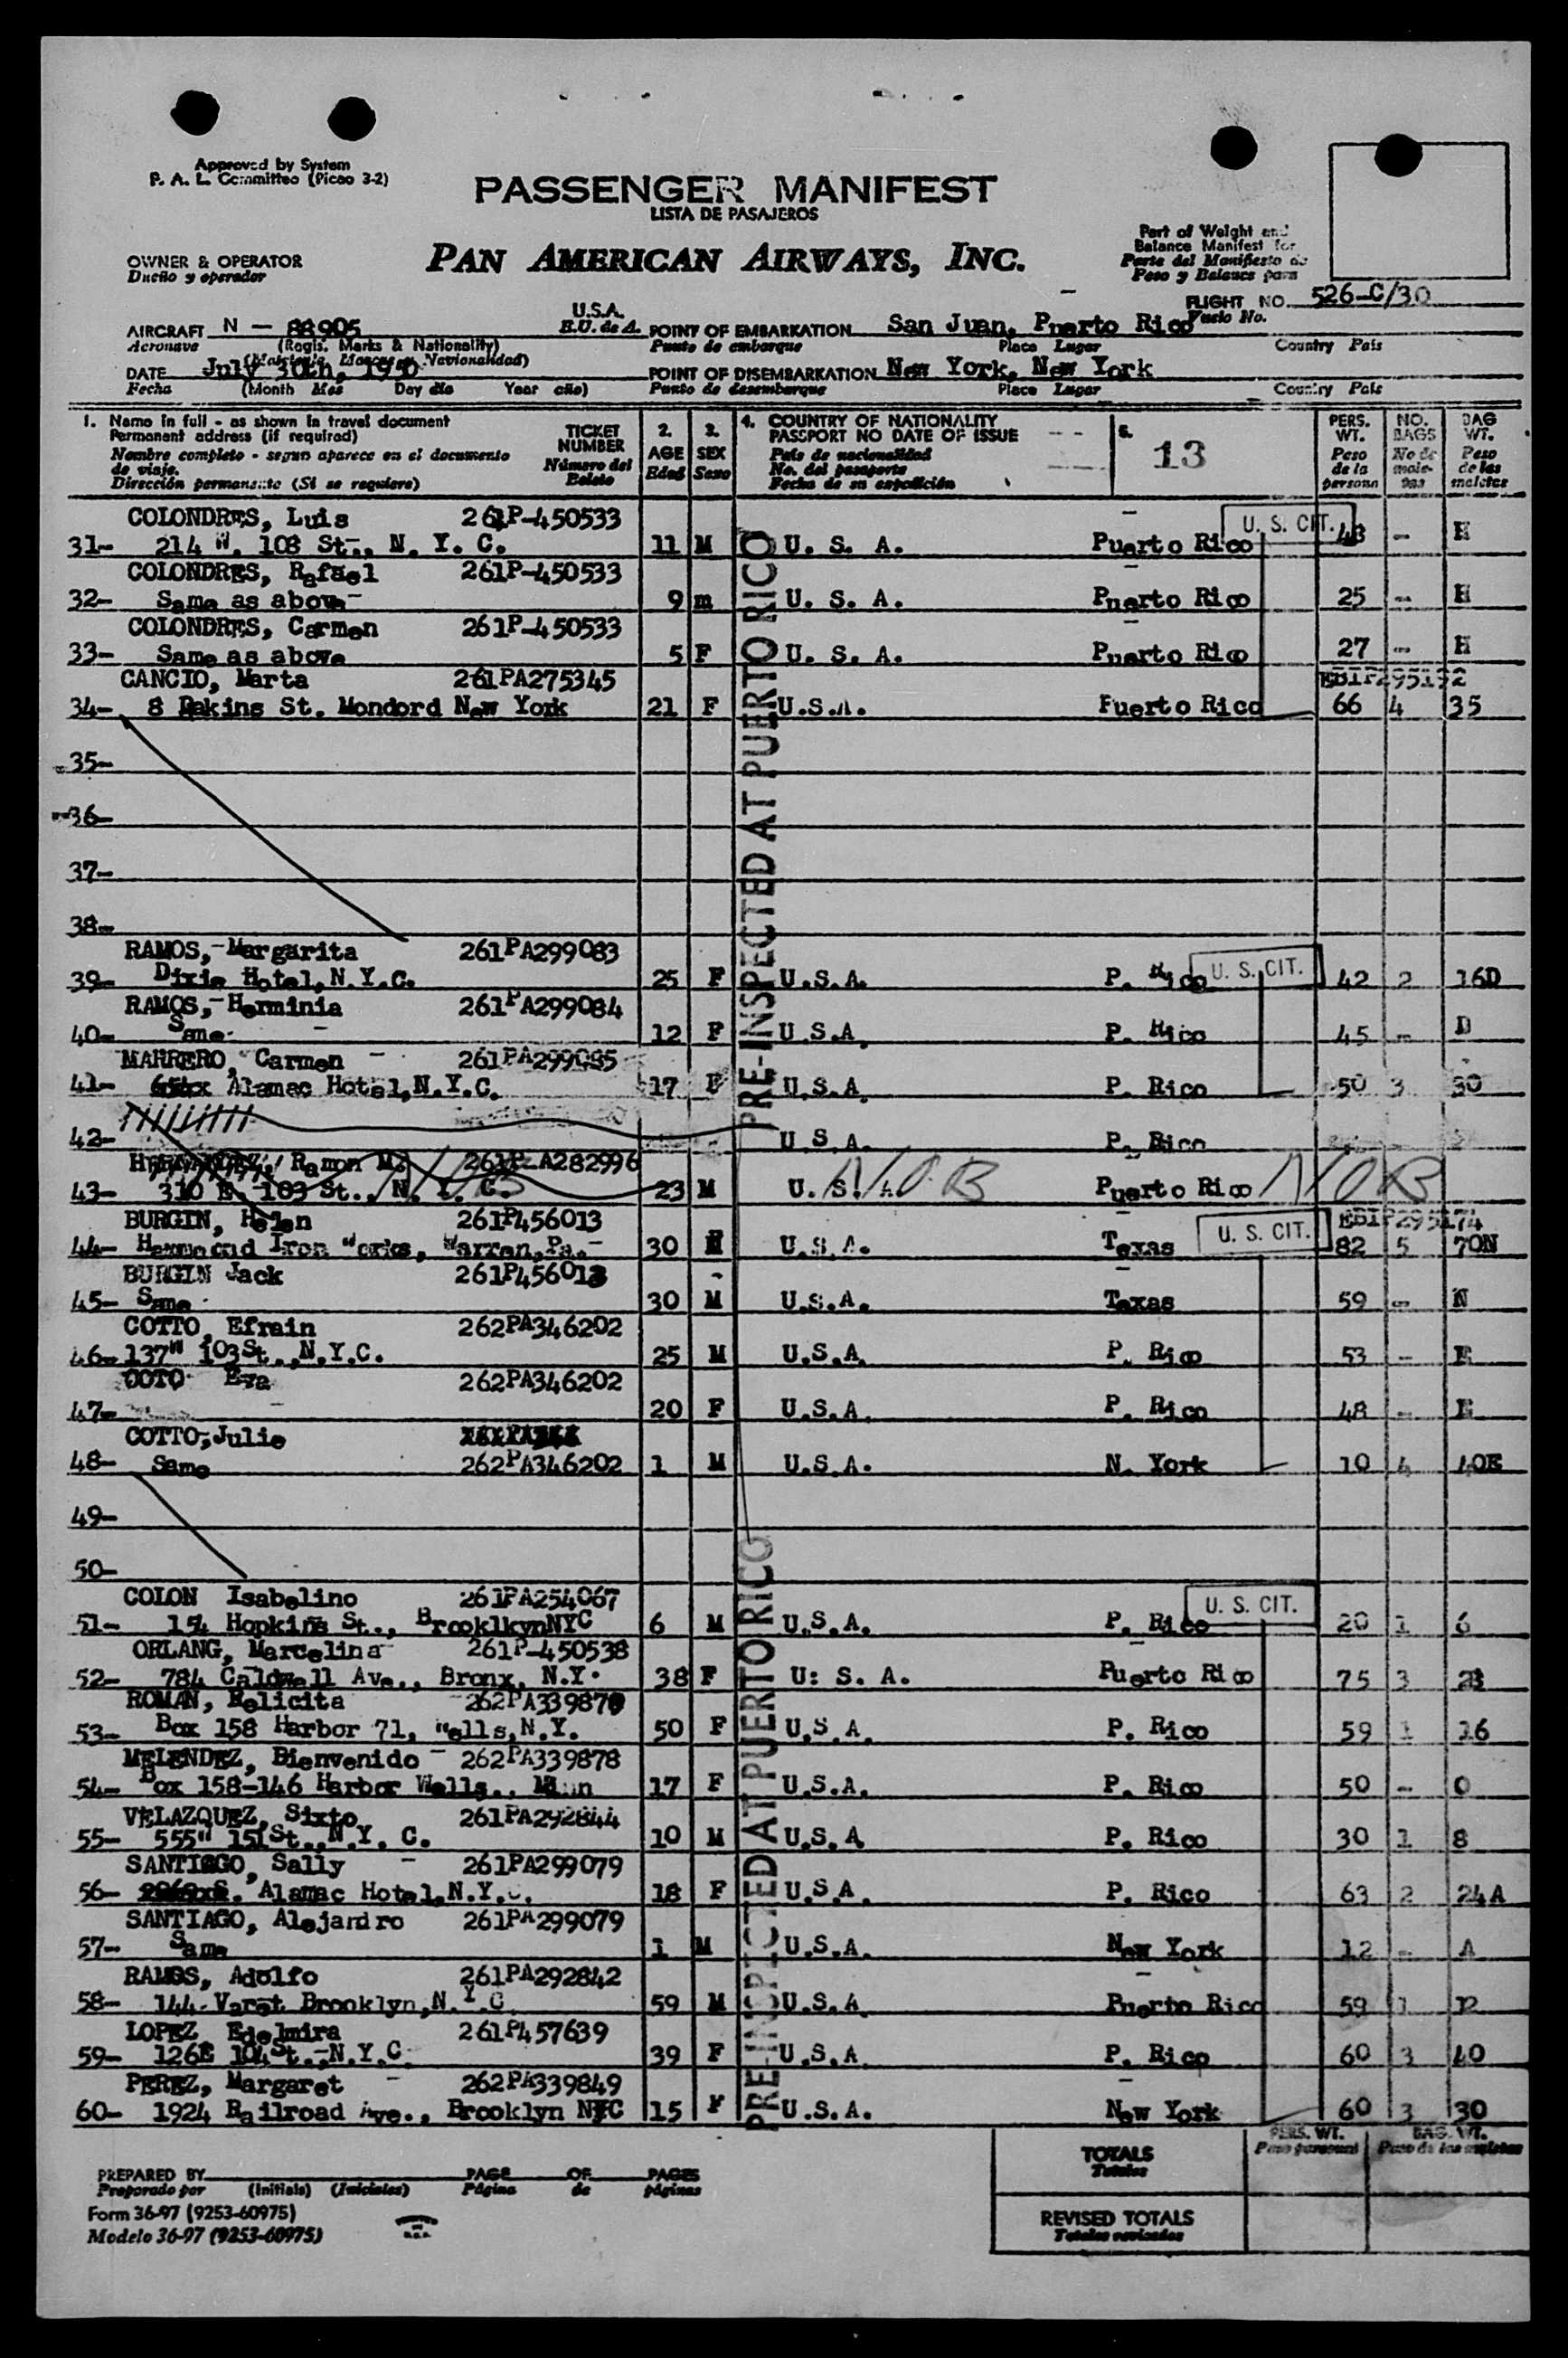 Approved by System
P. A. L. Committee (Picao 3-2)
PASSENGER MANIFEST
LISTA DE PASAJEROS
PAN AMERICAN AIRWAYS, INC.
Part of Weight and
Balance Manifest for
Parte del Manifiesto de
Peso y Balance para
OWNER & OPERATOR
Dueño y operador
FLIGHT NO. 526-C/30
Vuelo No.
AIRCRAFT N - 88905 U.S.A. E.U. de A.
Aeronave (Regis. Marks & Nationality)
POINT OF EMBARKATION San Juan, Puerto Rico
Punto de embarque Place Lugar Country País
DATE July 30th, 1950
Fecha (Month Mes Day día Year año)
POINT OF DISEMBARKATION New York, New York
Punto de desembarque Place Lugar Country País
1. Name in full - as shown in travel document
Permanent address (if required)
Nombre completo - segun aparece en el documento
de viaje.
Dirección permanente (Si se requiere)
TICKET NUMBER Número del Boleto
2. AGE Edad
3. SEX Sexo
4. COUNTRY OF NATIONALITY
PASSPORT NO DATE OF ISSUE
País de nacionalidad
No. del pasaporte
Fecha de su expedición
5. 13
PERS. WT. Peso de la persona
NO. BAGS No de male-
BAG WT. Peso de las maletas
PRE-INSPECTED AT PUERTO RICO
COLONDRES, Luis 261P-450533 U. S. CIT.
31- 214 W. 108 St., N. Y. C. 11 M U. S. A. Puerto Rico 43 - H
COLONDRES, Rafael 261P-450533
32- Same as above 9 m U. S. A. Puerto Rico 25 - H
COLONDRES, Carmen 261P-450533
33- Same as above 5 F U. S. A. Puerto Rico 27 - H
CANCIO, Marta 261PA275345 EBIP295192
34- 8 Dakins St. Mondord New York 21 F U.S.A. Puerto Rico 66 4 35
35-
36-
37-
38-
RAMOS, Margarita 261PA299083
39- Dixie Hotel, N.Y.C. 25 F U.S.A. P. Rico U. S. CIT. 42 2 16D
RAMOS, Herminia 261PA299084
40- Same 12 F U.S.A. P. Rico 45 - D
MARRERO, Carmen 261PA299085
41- Alamac Hotel, N.Y.C. 17 F U.S.A. P. Rico 50 3 30
42- U.S.A. P. Rico
HERNANDEZ, Ramon M. 261P-A282996
43- 310 E. 103 St., N. Y. C. 23 M U. S. A. NOB Puerto Rico NOB
BURGIN, Helen 261P456013 EBIP295174
44- Hammond Iron Works, Warren, Pa. 30 U.S.A. Texas U. S. CIT. 82 5 70N
BURGIN Jack 261P456013
45- Same 30 M U.S.A. Texas 59 - N
COTTO, Efrain 262PA346202
46- 137W 103St., N.Y.C. 25 M U.S.A. P. Rico 53 - E
COTO Eva 262PA346202
47- 20 F U.S.A. P. Rico 48 - E
COTTO, Julie
48- Same 262PA346202 1 M U.S.A. N. York 10 4 40E
49-
50-
COLON Isabelino 261PA254067 U. S. CIT.
51- 154 Hopkins St., BrooklkynNYC 6 M U.S.A. P. Rico 20 1 6
ORLANG, Marcelina 261P-450538
52- 784 Caldwell Ave., Bronx, N.Y. 38 F U: S. A. Puerto Rico 75 3 28
ROMAN, Felicita 262PA339878
53- Box 158 Harbor 71, Wells, N.Y. 50 F U.S.A. P. Rico 59 1 16
MELENDEZ, Bienvenido 262PA339878
54- Box 158-146 Harbor Wells., 17 F U.S.A. P. Rico 50 - O
VELAZQUEZ, Sixto 261PA292844
55- 555W 151St., N.Y. C. 10 M U.S.A. P. Rico 30 1 8
SANTIAGO, Sally 261PA299079
56- Alamac Hotel, N.Y.C. 18 F U.S.A. P. Rico 63 2 24A
SANTIAGO, Alejandro 261PA299079
57- Same 1 M U.S.A. New York 12 - A
RAMOS, Adolfo 261PA292842
58- 144 Varet Brooklyn, N.Y.C 59 M U.S.A Puerto Rico 59 1 12
LOPEZ Edelmira 261P457639
59- 126E 104St., N.Y.C. 39 F U.S.A P. Rico 60 3 40
PEREZ, Margaret 262PA339849
60- 1924 Railroad Ave., Brooklyn NYC 15 F U.S.A. New York 60 3 30
PRE-INSPECTED AT PUERTO RICO
TOTALS PERS. WT. BAG. WT.
Totales Peso personal Peso de las maletas
PREPARED BY PAGE OF PAGES
Preparado por (Initials) (Iniciales) Página de páginas
REVISED TOTALS
Totales revisados
Form 36-97 (9253-60975)
Modelo 36-97 (9253-60975)